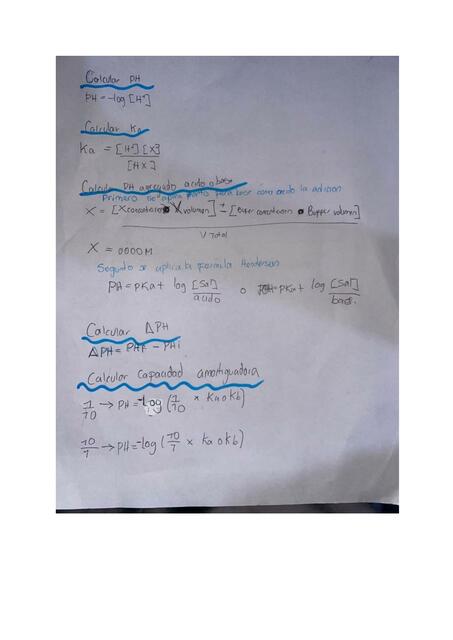 Calcular pH
PH = -log [H⁺]
Calcular Ka
Ka = [H⁺] [X⁻]
[HX]
Calcular PH agregado acido o base
Primero se aplica para base como acido la adicion
X = [X concentracion • X volumen] ± [Buffer concentracion • Buffer volumen]
V Total
X = 0000M
Segundo se aplica la formula Henderson
PH = PKa + log [Sal] o PH = PKa + log [Sal]
acido base.
Calcular ΔPH
ΔPH = PHf - PHi
Calcular Capacidad amortiguadora
1/10 → PH = -Log (1/10 × Ka o Kb)
10/1 → PH = -log (10/1 × Ka o Kb)